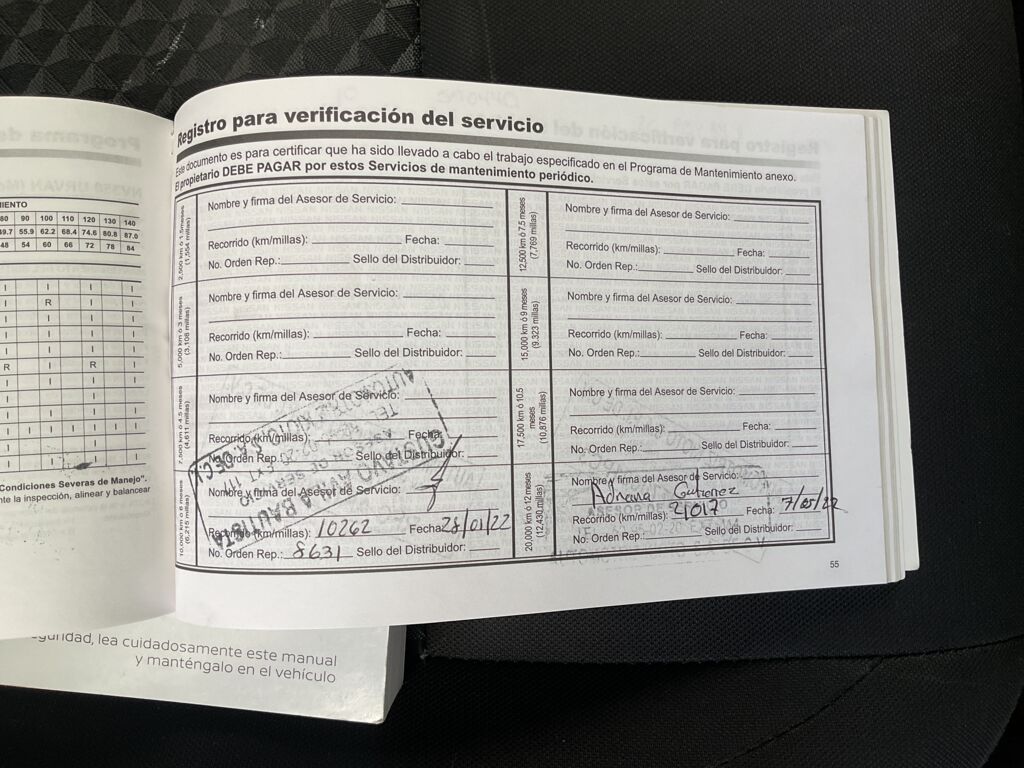 MIENTO
80 90 100 110 120 130 140
49.7 55.9 62.2 68.4 74.6 80.8 87.0
48 54 60 66 72 78 84
I I I I
I R I I
I I I I
I I I I
I I I I
R I R I
I I I I
Condiciones Severas de Manejo".
nte la inspección, alinear y balancear
Registro para verificación del servicio
Este documento es para certificar que ha sido llevado a cabo el trabajo especificado en el Programa de Mantenimiento anexo.
El propietario DEBE PAGAR por estos Servicios de mantenimiento periódico.
2,500 km ó 1.5 meses
(1,554 millas)
Nombre y firma del Asesor de Servicio:
Recorrido (km/millas): Fecha:
No. Orden Rep.: Sello del Distribuidor:
5,000 km ó 3 meses
(3,108 millas)
Nombre y firma del Asesor de Servicio:
Recorrido (km/millas): Fecha:
No. Orden Rep.: Sello del Distribuidor:
7,500 km ó 4.5 meses
(4,611 millas)
Nombre y firma del Asesor de Servicio:
Recorrido (km/millas): Fecha:
No. Orden Rep.: Sello del Distribuidor:
10,000 km ó 6 meses
(6,215 millas)
Nombre y firma del Asesor de Servicio:
Recorrido (km/millas): 10262 Fecha: 28/01/22
No. Orden Rep.: 8631 Sello del Distribuidor:
GUSTAVO AVILA BAUTISTA
ASESOR DE SERVICIO
12,500 km ó 7.5 meses
(7,769 millas)
Nombre y firma del Asesor de Servicio:
Recorrido (km/millas): Fecha:
No. Orden Rep.: Sello del Distribuidor:
15,000 km ó 9 meses
(9,323 millas)
Nombre y firma del Asesor de Servicio:
Recorrido (km/millas): Fecha:
No. Orden Rep.: Sello del Distribuidor:
17,500 km ó 10.5
meses
(10,876 millas)
Nombre y firma del Asesor de Servicio:
Recorrido (km/millas): Fecha:
No. Orden Rep.: Sello del Distribuidor:
20,000 km ó 12 meses
(12,430 millas)
Nombre y firma del Asesor de Servicio:
Adriana Gutierrez
Recorrido (km/millas): 21017 Fecha: 7/05/22
No. Orden Rep.: Sello del Distribuidor:
55
eguridad, lea cuidadosamente este manual
y manténgalo en el vehículo